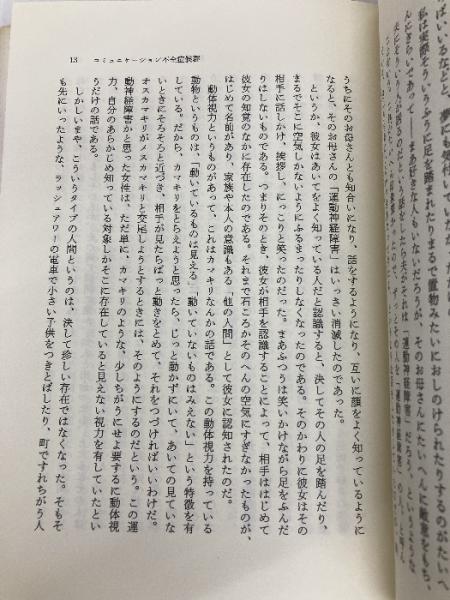 13　コミュニケーション不全症候群
うちにそのお母さんとも知合いになり、話をするようになり、互いに顔をよく知っているように
なると、そのお母さんの「運動神経障害」はいっさい消滅したのであった。
というか、彼女はあいてをよく知っている人だと認識すると、決してその人の足を踏んだり、
まるでそこに空気しかないようにふるまったりしなくなったのである。そのかわりに彼女はその
相手に話しかけ、挨拶し、にっこりと笑ったのだった。まあふつうは笑いかけながら足をふんだ
りはしないものである。つまりそのとき、彼女が相手を認識することによって、相手ははじめて
彼女の知覚のなかに存在したのである。それまで石ころかそのへんの空気にすぎなかったものが、
はじめて名前があり、家族や本人の意識もある「他の人間」として彼女に認知されたのだ。
動体視力というものがあって、これはカマキリなんかの話である。この動体視力を持っている
動物というものは、「動いているものは見える」「動いていないものはみえない」という特徴を有
している。だから、カマキリをとらえようと思ったら、じっと動かずにいて、あいての見ていな
いときにそろそろと近づき、相手が見たらばっと動きをとめて、それをつづければいいわけだ。
オスカマキリがメスカマキリと交尾しようとするときには、そのようにするのだという。この運
動神経障害かと思った女性は、ただ単に、カマキリのような、少しちがうにせよ要するに動体視
力、自分のあらかじめ知っている対象しかそこに存在していると見えない視力を有していたとい
うだけの話である。
しかしいまや、こういうタイプの人間というのは、決して珍しい存在ではなくなった。そもそ
も先にいったように、ラッシュアワーの電車で小さい子供をつきとばしたり、町ですれちがう人